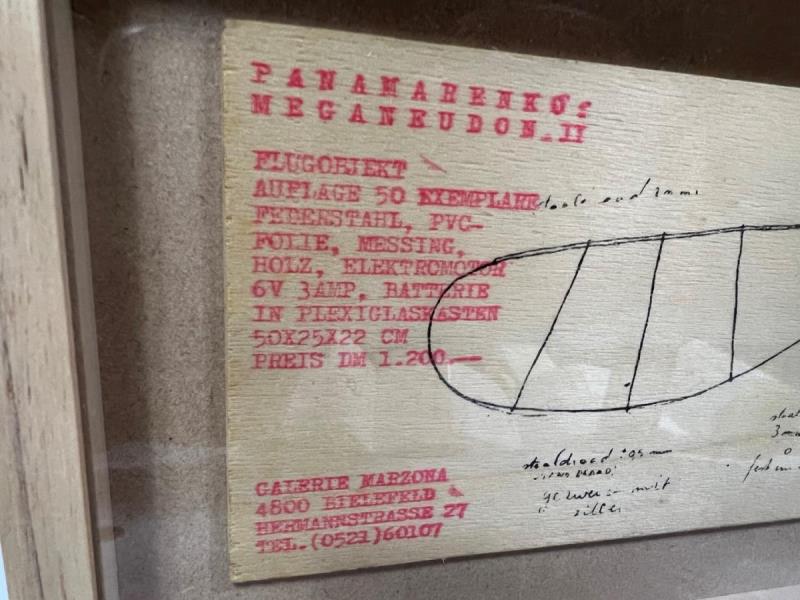 PANAMARENKO's
MEGANEUDON.II
FLUGOBJEKT
AUFLAGE 50 EXEMPLARE
FEDERSTAHL, PVC-
FOLIE, MESSING,
HOLZ, ELEKTROMOTOR
6V 3AMP, BATTERIE
IN PLEXIGLASKASTEN
50X25X22 CM
PREIS DM 1.200.—
GALERIE MARZONA
4800 BIELEFELD
HERMANNSTRASSE 27
TEL.(0521)60107